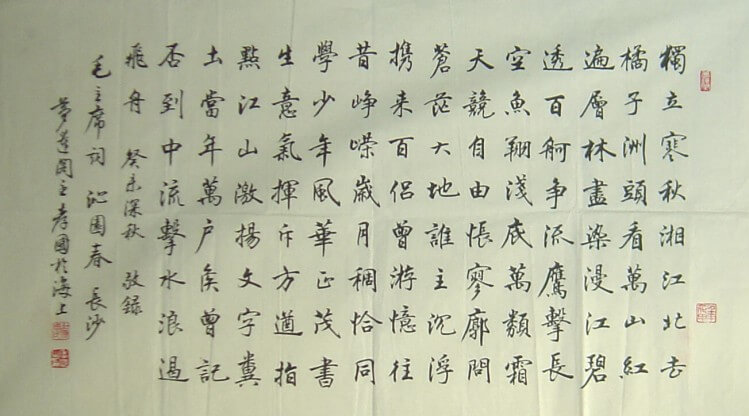 獨立寒秋湘江北去
橘子洲頭看萬山紅
遍層林盡染漫江碧
透百舸争流鷹擊長
空魚翔淺底萬類霜
天競自由悵寥廓問
蒼茫大地誰主沉浮
携来百侣曾游憶往
昔崢嶸歲月稠恰同
學少年風華正茂書
生意氣揮斥方遒指
點江山激揚文字糞
土當年萬户侯曾記
否到中流擊水浪遏
飛舟 癸未深秋 敬録
毛主席詞 沁園春 長沙
閣主孝國於海上